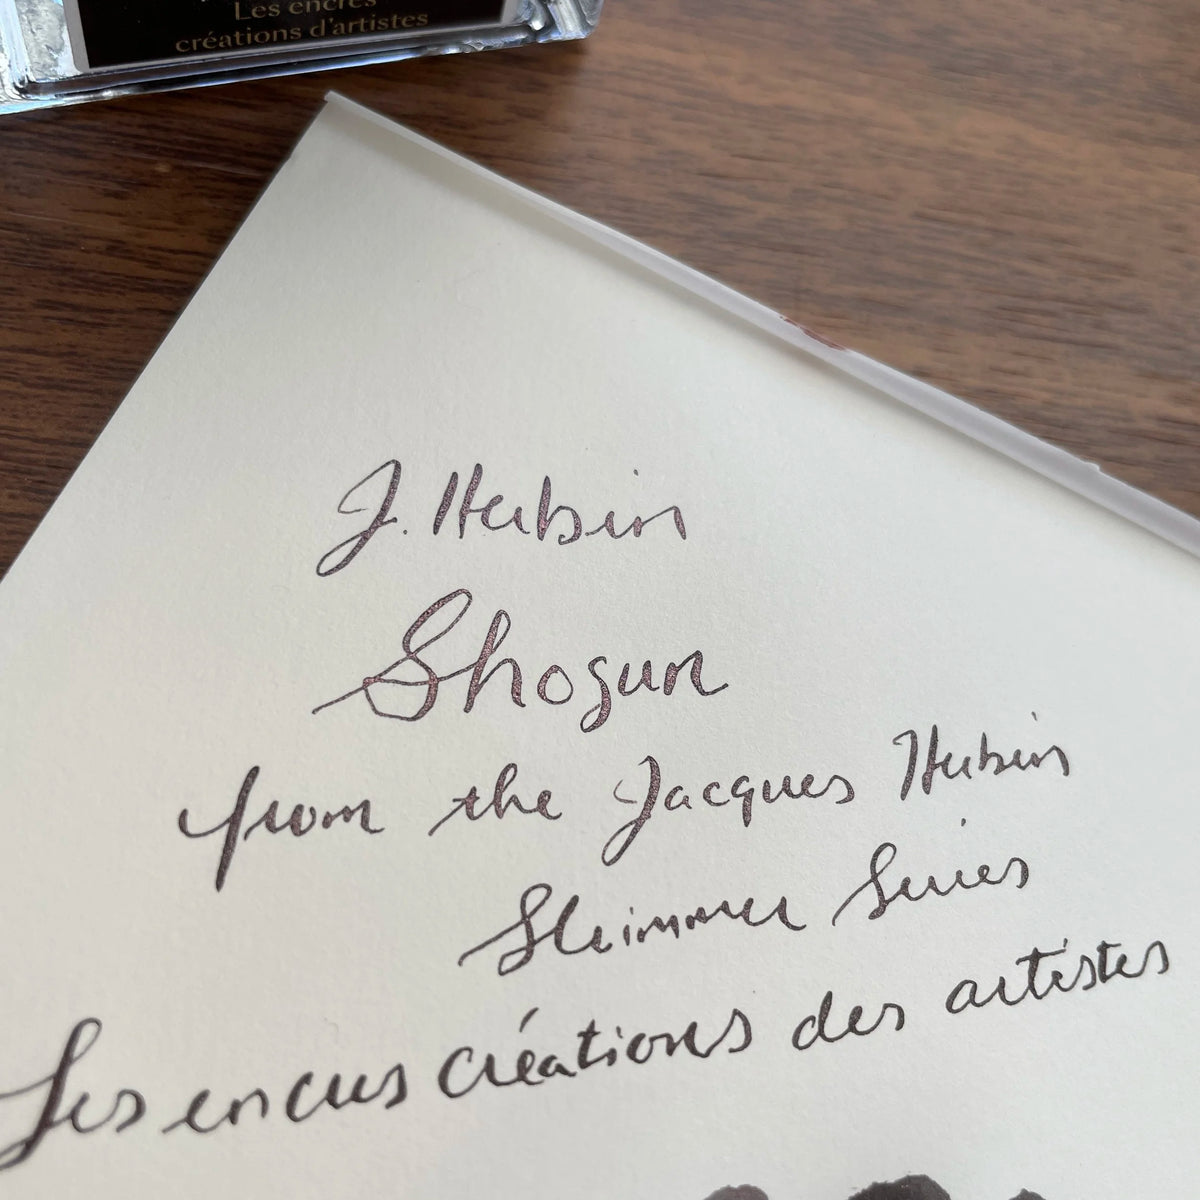 Les encres
créations d'artistes
J. Herbin
Shogun
from the Jacques Herbin
Shimmer Series
Les encres créations des artistes